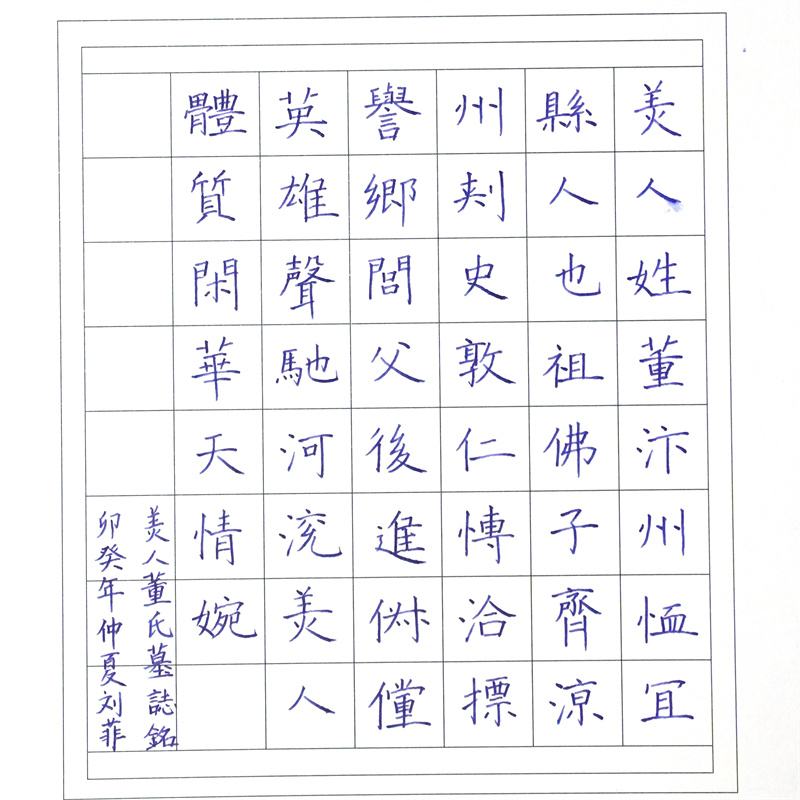 美人姓董汴州恤宜
縣人也祖佛子齊涼
州刾史敦仁慱洽摽
譽鄉閭父後進俶儻
英雄聲馳河兖美人
體質閑華天情婉
美人董氏墓誌銘
卯癸年仲夏刘菲